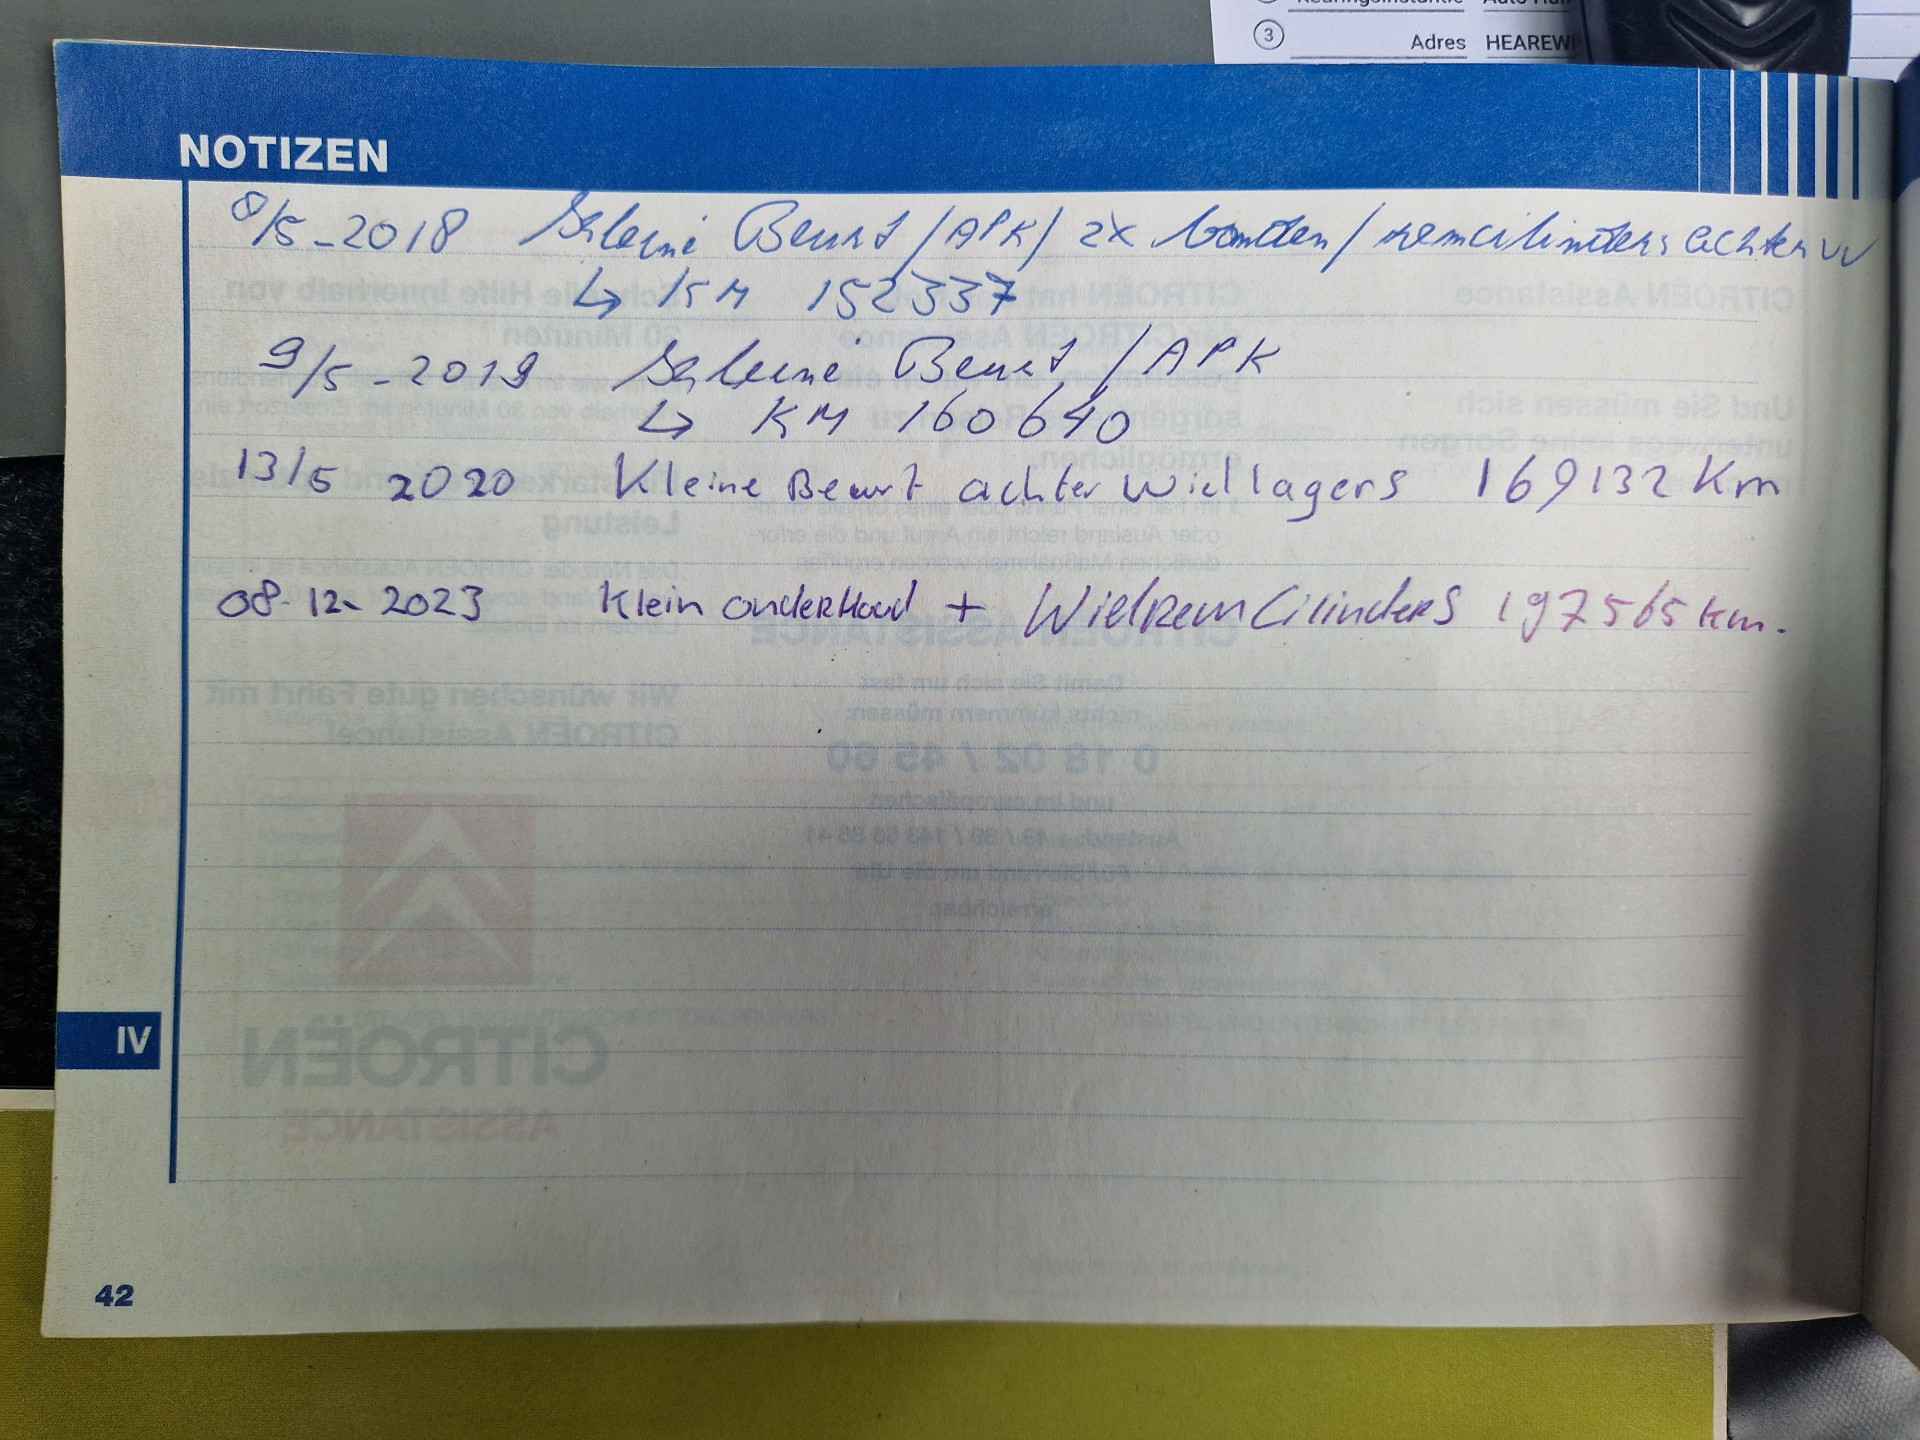 Adres HEAREW
3
NOTIZEN
8/5-2018 Kleine Beurt / APK / 2x banden / remcilinders achter vv
↳ KM 152337
9/5-2019 Kleine Beurt / APK
↳ KM 160640
13/5 2020 Kleine Beurt achter wiellagers 169132 Km
08-12-2023 Klein onderHoud + WielRem Cilinders 197565 km.
IV
42